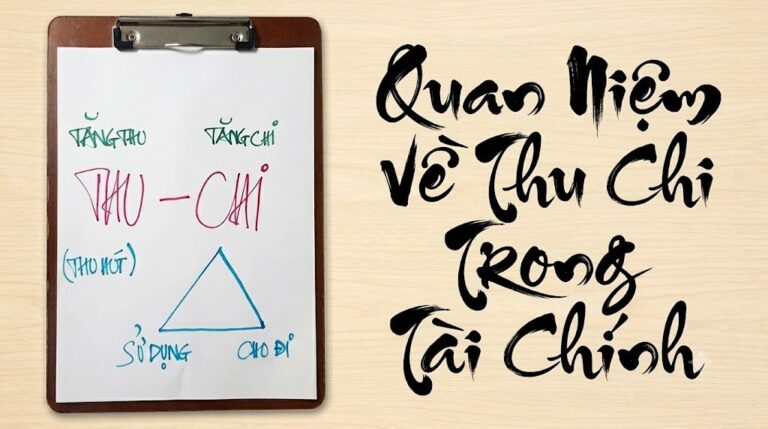 TĂNG THU TĂNG CHI
THU – CHI
(THU HÚT)
SỬ DỤNG CHO ĐI
Quan Niệm
Về Thu Chi
Trong
Tài Chính